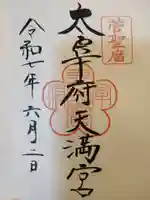 菅聖廟
太宰府天満宮
令和七年六月二日